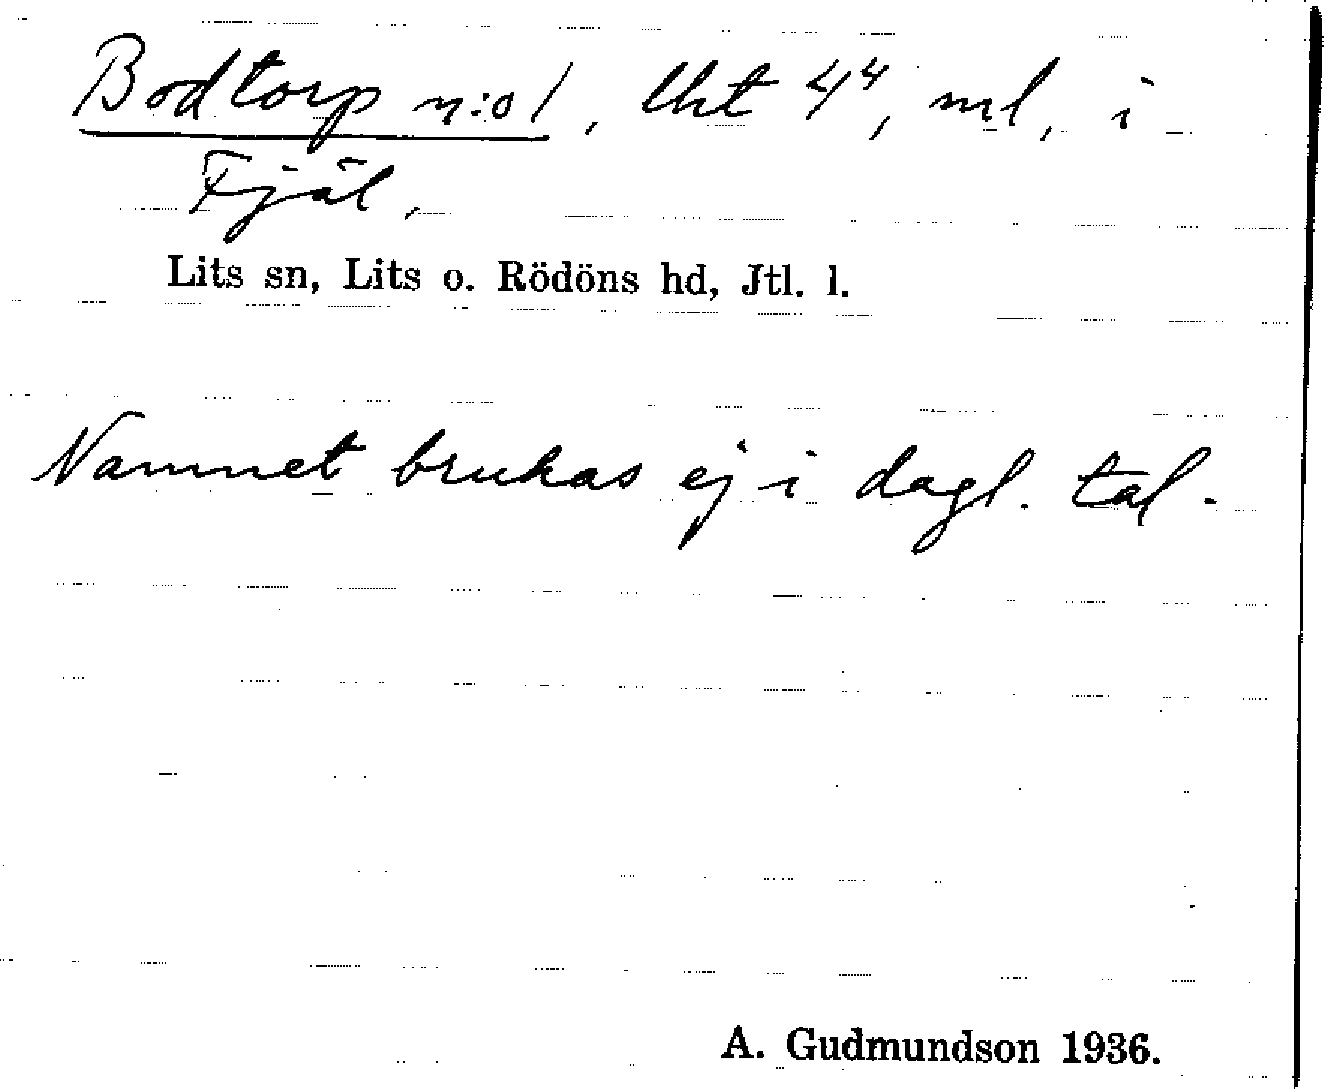 Bodtorp n:o 1, lht 4⁴, ml, i
Fjäl.
Lits sn, Lits o. Rödöns hd, Jtl. l.
Namnet brukas ej i dagl. tal.
A. Gudmundson 1936.